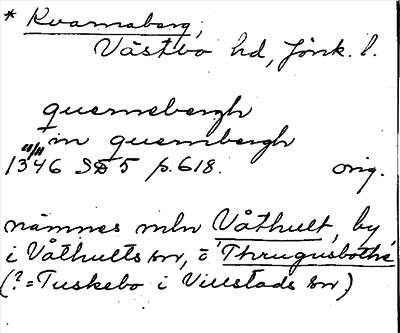 * Kvarnaberg,
Västbo hd, Jönk. l.
quernebergh
in quernbergh
1346 SD 5 p. 618. orig.
nämnes mln Våthult, by
i Våthults sn, o Thrugusbothe
(? = Tuskebo i Villstads sn)